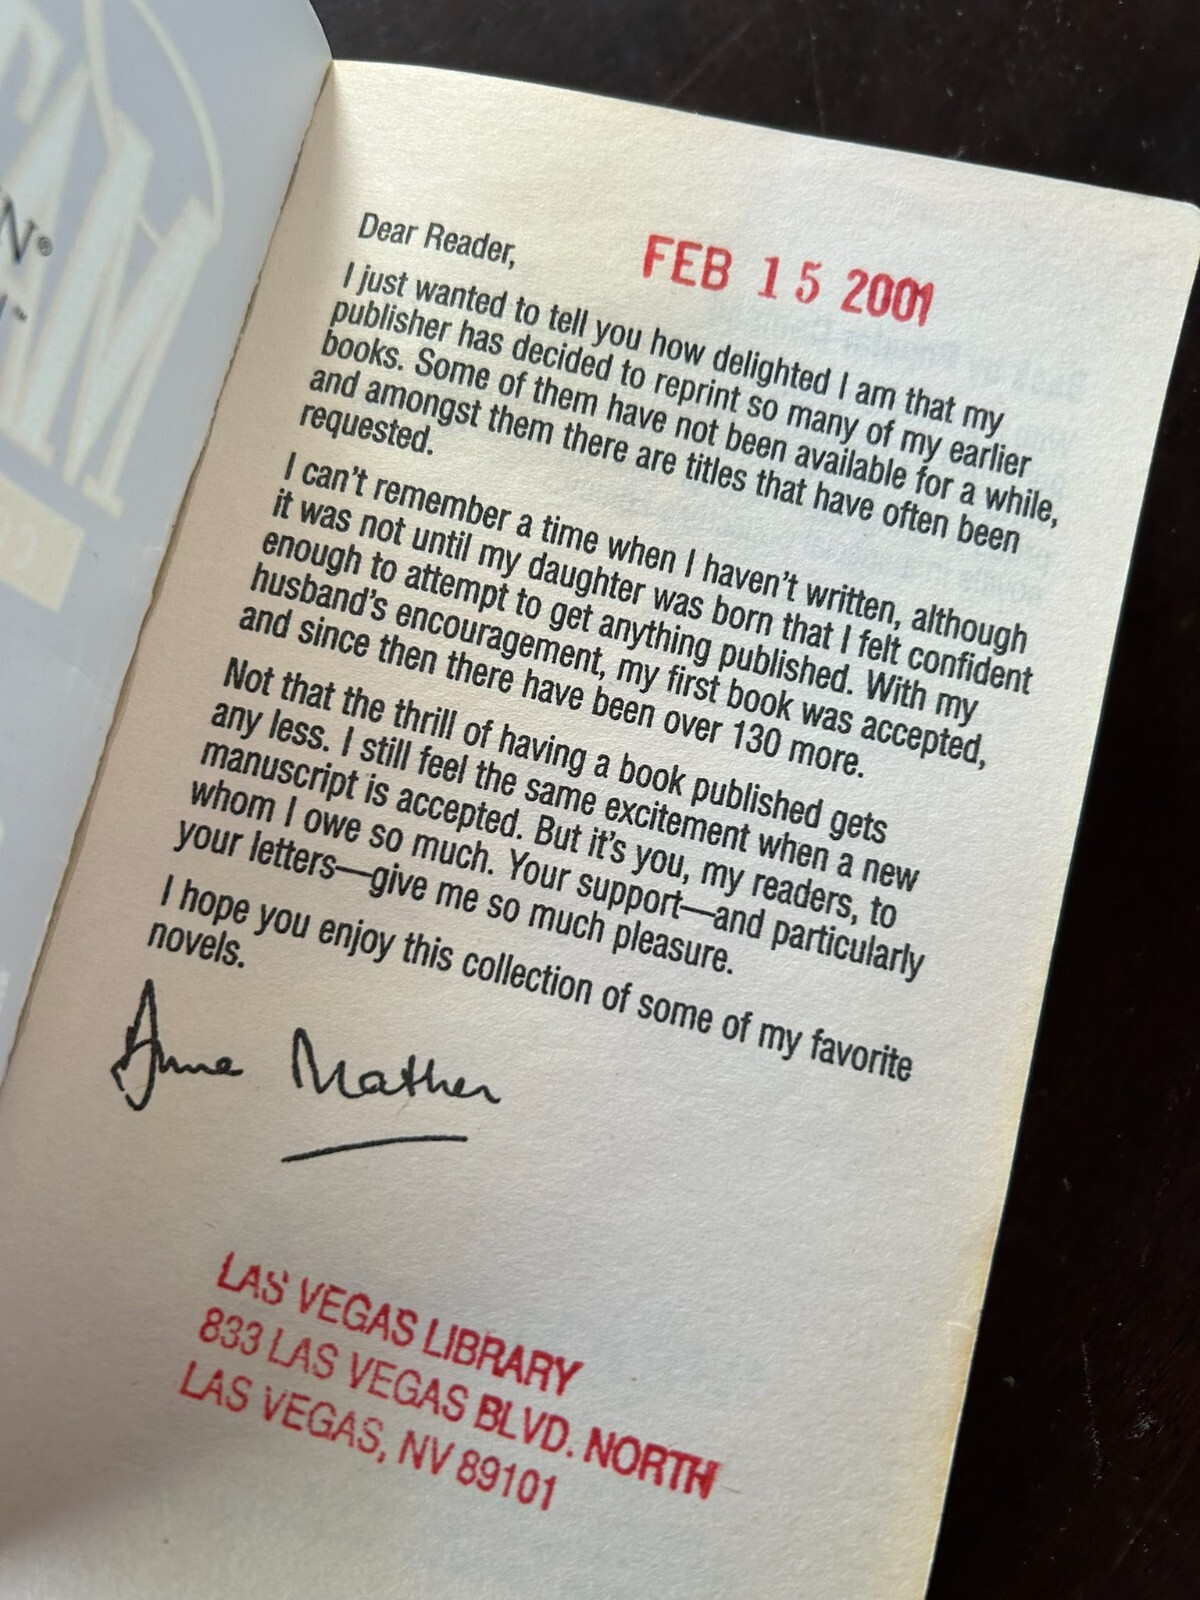 Dear Reader,
FEB 15 2001
I just wanted to tell you how delighted I am that my
publisher has decided to reprint so many of my earlier
books. Some of them have not been available for a while,
and amongst them there are titles that have often been
requested.
I can't remember a time when I haven't written, although
it was not until my daughter was born that I felt confident
enough to attempt to get anything published. With my
husband's encouragement, my first book was accepted,
and since then there have been over 130 more.
Not that the thrill of having a book published gets
any less. I still feel the same excitement when a new
manuscript is accepted. But it's you, my readers, to
whom I owe so much. Your support—and particularly
your letters—give me so much pleasure.
I hope you enjoy this collection of some of my favorite
novels.
Anne Mather
LAS VEGAS LIBRARY
833 LAS VEGAS BLVD. NORTH
LAS VEGAS, NV 89101